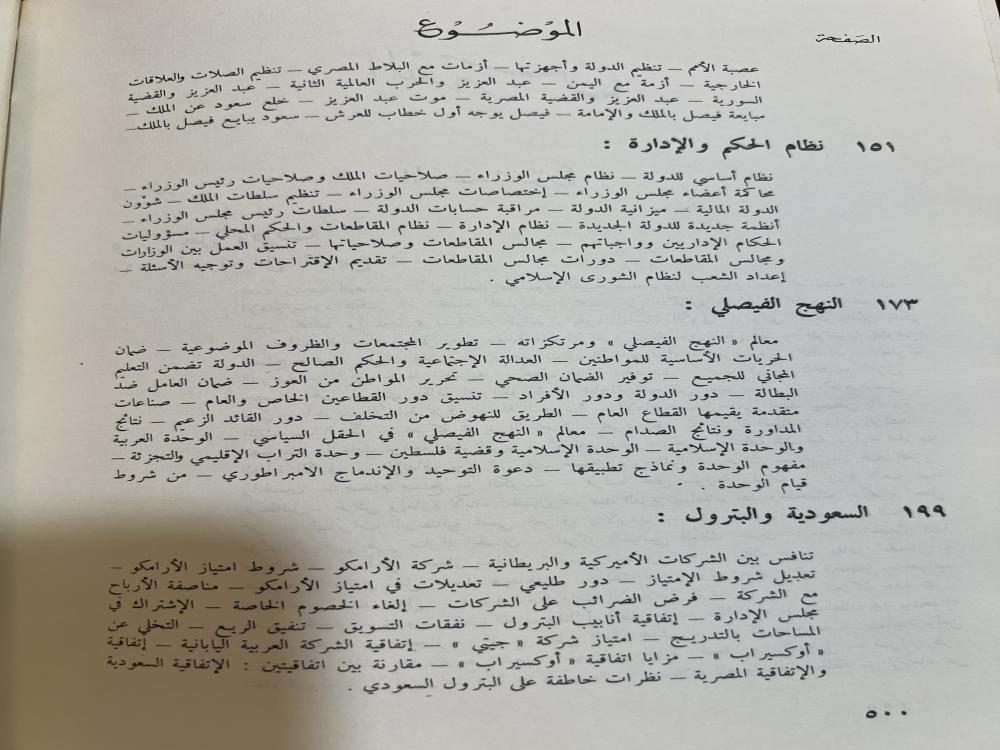 الصفحة الموضوع
عصبة الأمم — تنظيم الدولة وأجهزتها — أزمات مع البلاط المصري — تنظيم الصلات والعلاقات
الخارجية — أزمة مع اليمن — عبد العزيز والحرب العالمية الثانية — عبد العزيز والقضية
السورية — عبد العزيز والقضية المصرية — موت عبد العزيز — خلع سعود عن الملك —
مبايعة فيصل بالملك والإمامة — فيصل يوجه أول خطاب للعرش — سعود يبايع فيصل بالملك.
١٥١ نظام الحكم والإدارة :
نظام أساسي للدولة — نظام مجلس الوزراء — صلاحيات الملك وصلاحيات رئيس الوزراء —
محاكمة أعضاء مجلس الوزراء — إختصاصات مجلس الوزراء — تنظيم سلطات الملك — شؤون
الدولة المالية — ميزانية الدولة — مراقبة حسابات الدولة — سلطات رئيس مجلس الوزراء —
أنظمة جديدة للدولة الجديدة — نظام الإدارة — نظام المقاطعات والحكم المحلي — مسؤوليات
الحكام الإداريين وواجباتهم — مجالس المقاطعات وصلاحياتها — تنسيق العمل بين الوزارات
ومجالس المقاطعات — دورات مجالس المقاطعات — تقديم الإقتراحات وتوجيه الأسئلة —
إعداد الشعب لنظام الشورى الإسلامي .
١٧٣ النهج الفيصلي :
معالم « النهج الفيصلي » ومرتكزاته — تطوير المجتمعات والظروف الموضوعية — ضمان
الحريات الأساسية للمواطنين — العدالة الإجتماعية والحكم الصالح — الدولة تضمن التعليم
المجاني للجميع — توفير الضمان الصحي — تحرير المواطن من العوز — ضمان العامل ضد
البطالة — دور الدولة ودور الأفراد — تنسيق دور القطاعين الخاص والعام — صناعات
متقدمة يقيمها القطاع العام — الطريق للنهوض من التخلف — دور القائد الزعيم — نتائج
المداورة ونتائج الصدام — معالم « النهج الفيصلي » في الحقل السياسي — الوحدة العربية
والوحدة الإسلامية — الوحدة الإسلامية وقضية فلسطين — وحدة التراب الإقليمي والتجزئة —
مفهوم الوحدة ونماذج تطبيقها — دعوة التوحيد والإندماج الامبراطوري — من شروط
قيام الوحدة .
١٩٩ السعودية والبترول :
تنافس بين الشركات الأميركية والبريطانية — شركة الأرامكو — شروط امتياز الأرامكو —
تعديل شروط الإمتياز — دور طليعي — تعديلات في امتياز الأرامكو — مناصفة الأرباح
مع الشركة — فرض الضرائب على الشركات — إلغاء الخصوم الخاصة — الإشتراك في
مجلس الإدارة — إتفاقية أنابيب البترول — نفقات التسويق — تنفيق الريع — التخلي عن
المساحات بالتدريج — امتياز شركة « جيتي » — إتفاقية الشركة العربية اليابانية — إتفاقية
« أوكسيراب » — مزايا اتفاقية « أوكسيراب » — مقارنة بين اتفاقيتين : الإتفاقية السعودية
والإتفاقية المصرية — نظرات خاطفة على البترول السعودي .
٥٠٠